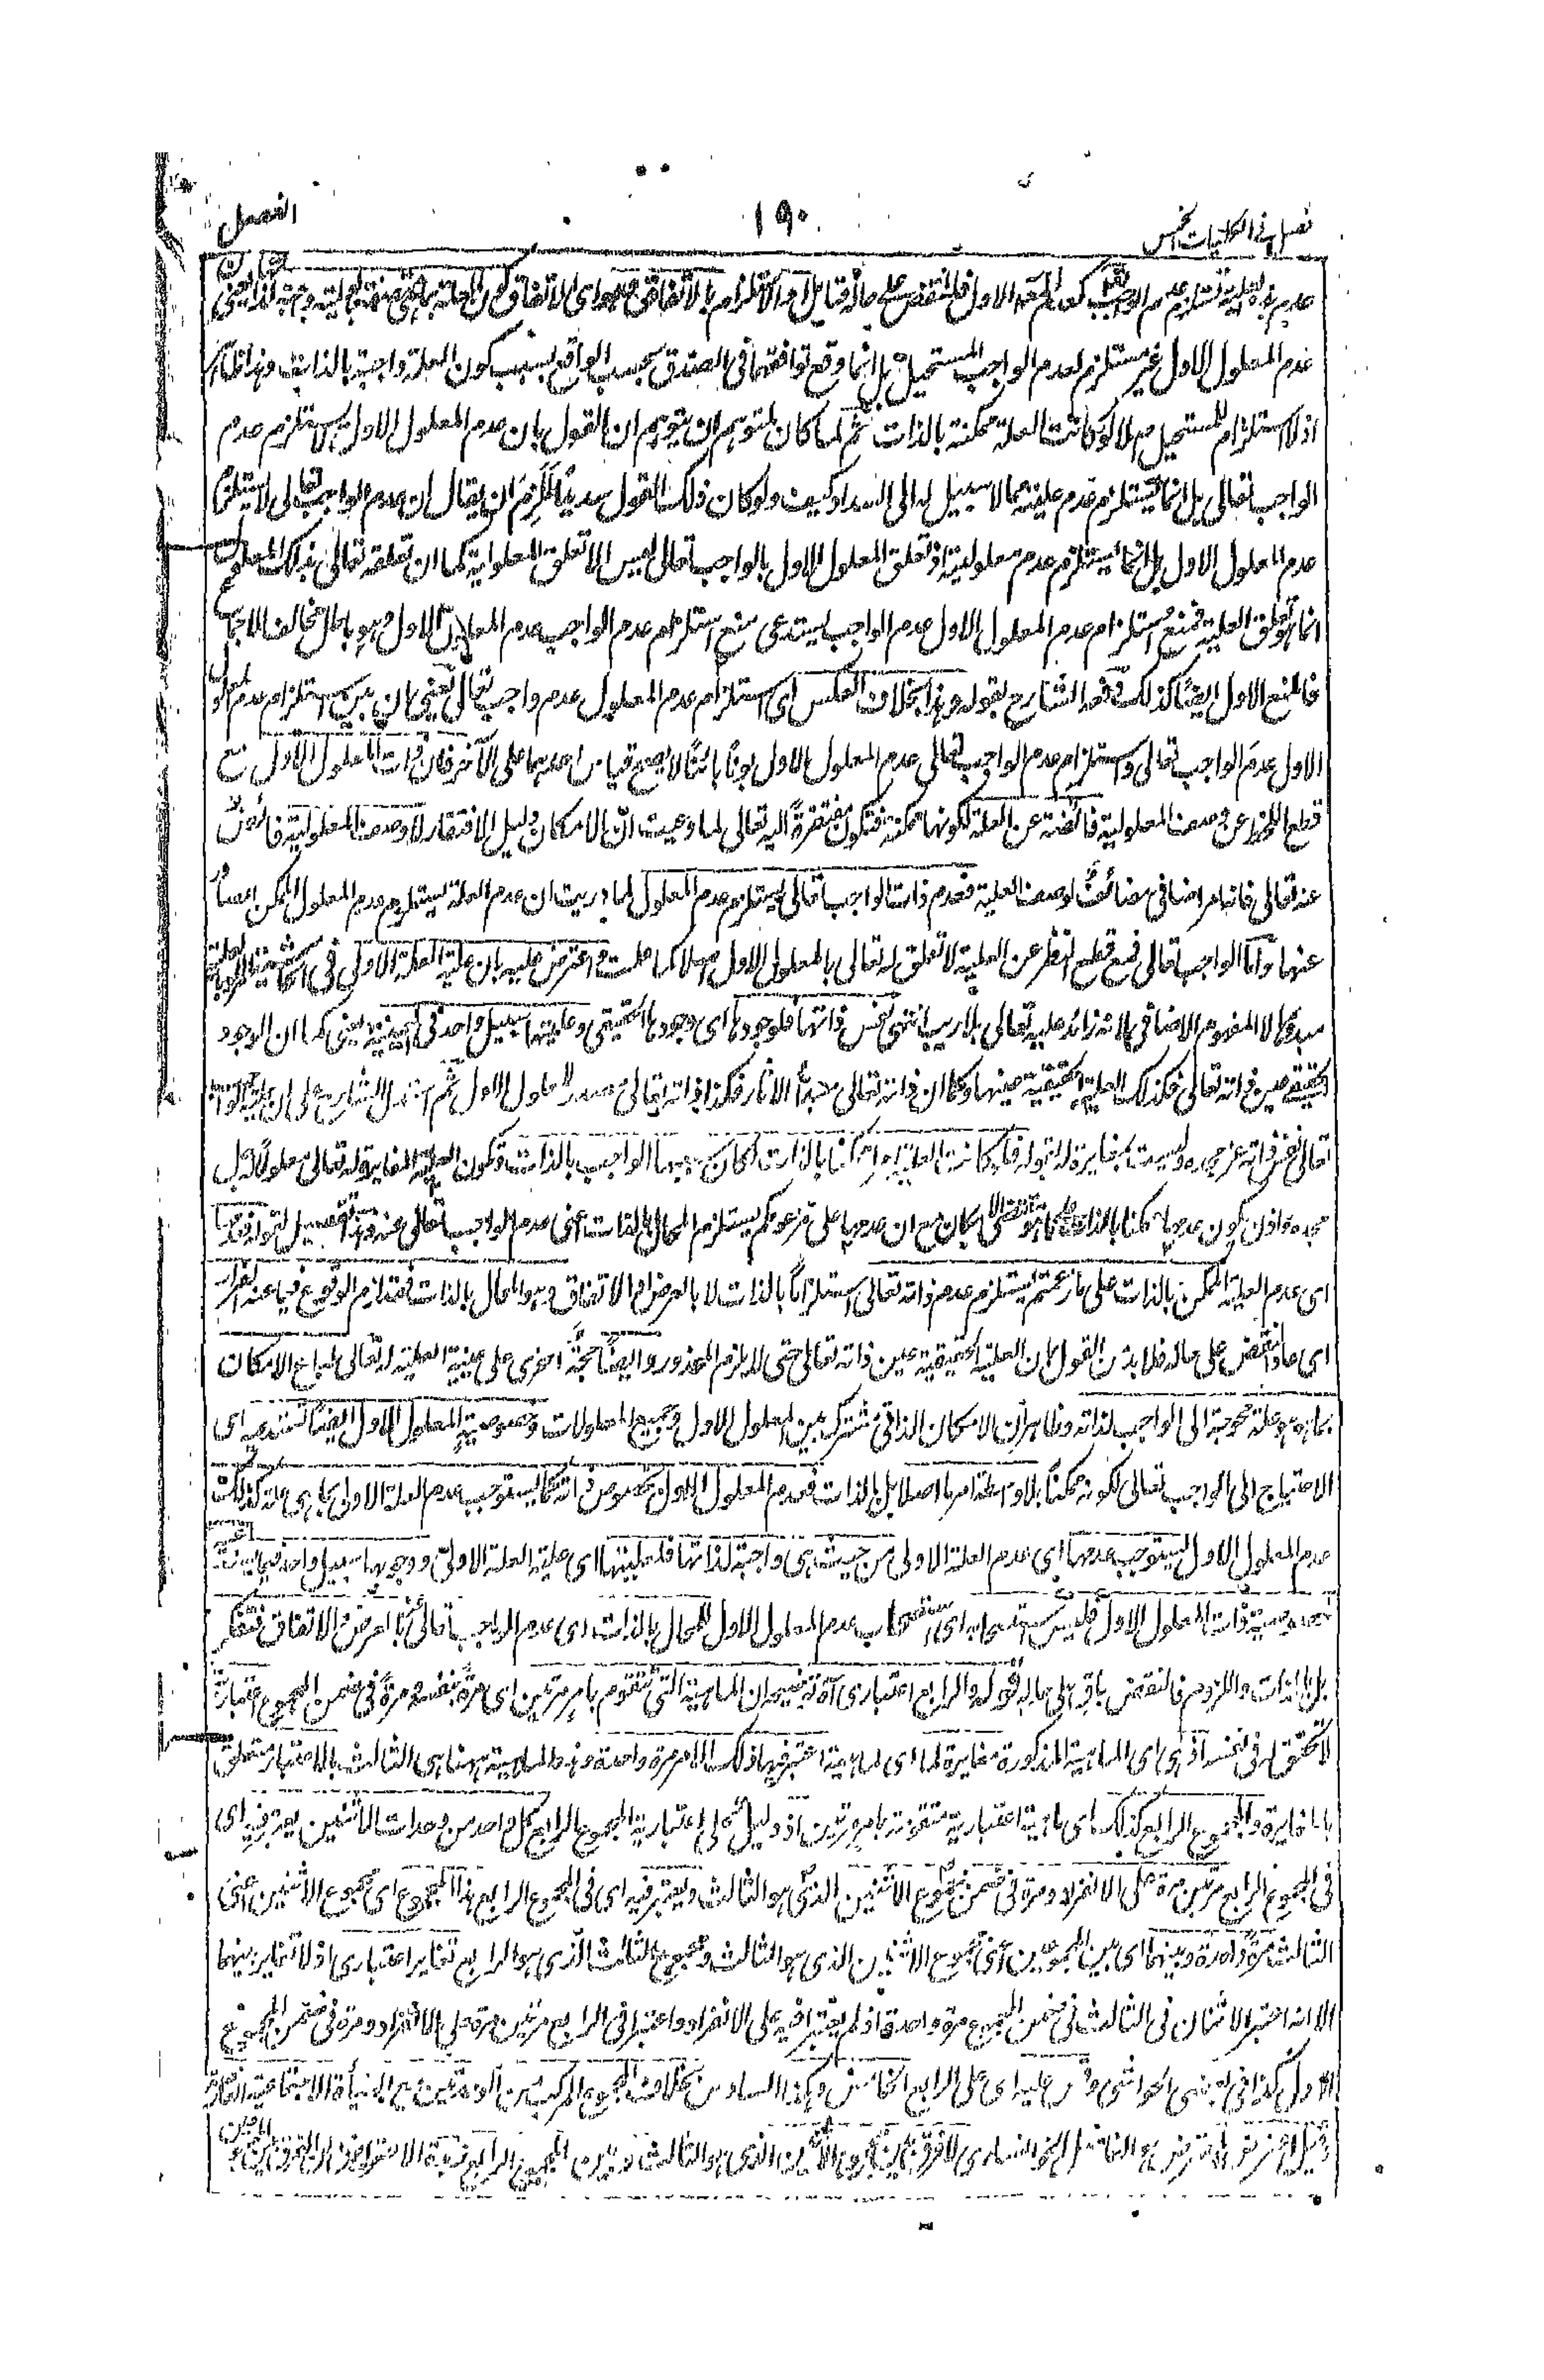 فصل في الكليات الخمس
١٩٠
الفصل
عدم المعلول الاول غير مستلزم لعدم الواجب المستحيل بل انما وقع توافقهما في الصدق بحسب الواقع بسبب كون العلة واجبة بالذات وهذا
اذ لا استلزام للمستحيل اصلا لو كانت العلة ممكنة بالذات ثم لما كان لمتوهم ان يتوهم ان القول بان عدم المعلول الاول لا يستلزم عدم
الواجب تعالى بل انما يستلزم عدم عليته مما لا سبيل له الى السداد كيف ولو كان ذلك القول سديدا لزم ان يقال ان عدم الواجب تعالى لا يستلزم
عدم المعلول الاول بل انما يستلزم عدم معلوليته اذ تعلق المعلول الاول بالواجب تعالى ليس الا تعلق المعلولية كما ان تعلقه تعالى بذلك المعلول
انما هو تعلق العلية فمنع استلزام عدم المعلول الاول عدم الواجب يستدعي منع استلزام عدم الواجب عدم المعلول الاول وهو باطل مخالف للاجماع
فالمنع الاول ايضا كذلك دفعه الشارح بقوله وهذا بخلاف العكس اى استلزام عدم المعلول عدم واجب تعالى يعني ان بين استلزام عدم المعلول
الاول عدم الواجب تعالى واستلزام عدم الواجب تعالى عدم المعلول الاول بونا بائنا لا يصح قياس احدهما على الآخر فان ذات المعلول الاول مع
قطع النظر عن وصف المعلولية فائضة عن العلة لكونها ممكنة فتكون مفتقرة اليه تعالى لما وعيت ان الامكان دليل الافتقار لا وصف المعلولية فائض
عنه تعالى فانه امر اضافي مضائف لوصف العلية فعدم ذات الواجب تعالى يستلزم عدم المعلول لما دريت ان عدم العلة يستلزم عدم المعلول الممكن
عنها واما الواجب تعالى فمع قطع النظر عن العلية لا تعلق له تعالى بالمعلول الاول اصلا كما علمت واعترض عليه بان علية العلة الاولى في
مبدء لا المفهوم الاضافي لانه زائد عليه تعالى بلا ريب انتهى نفس ذاتها فلوجودها اى وجودها الحقيقي وعليتها سبيل واحد في العينية يعني كما ان الوجود
الحقيقي عين ذاته تعالى فكذلك العلية الحقيقية عينها وكما ان ذاته تعالى مبدأ الآثار فكذا ذاته تعالى مصدر المعلول الاول ثم استدل الشارح على ان علية الواجب
تعالى نفس ذاته عز مجده وليست بمغايرة له بقوله فلو كانت العلية امرا ممكنا بالذات لكان سببها الواجب بالذات وتكون العلية المغايرة له تعالى معلولا له جل
مجده واذن يكون عدمها ممكنا بالذات كما هو مقتضى الامكان مع ان عدمها على زعمكم يستلزم المحال بالذات اعني عدم الواجب تعالى عنه
اى عدم العلية الممكن بالذات على ما زعمتم يستلزم عدم ذاته تعالى استلزاما بالذات لا بالعرض او الاتفاق وهو المحال بالذات فقد لزم الوقوع فيما عنه الفرار
اى عاد النقض على حاله فلا بد من القول بان العلية الحقيقية عين ذاته تعالى حتى لا يلزم المحذور وايضا حجة اخرى على عينية العلية له تعالى طباع الامكان
بما هو هو علة محوجة الى الواجب لذاته وظاهر ان الامكان الذاتي مشترك بين المعلول الاول وجميع المعلولات وخصوصية المعلول الاول ايضا تستدعيه اى
الاحتياج الى الواجب تعالى لكونه ممكنا بلا واسطة امر ما اصلا بل بالذات فعدم المعلول الاول بخصوص ذاته كما يستوجب عدم العلة الاولى بما هي علة كذلك
عدم المعلول الاول يستوجب عدمها اى عدم العلة الاولى من حيث هي واجبة لذاتها فلعليتها اى علية العلة الاولى ووجوبها سبيل واحد
خصوصية ذات المعلول الاول فليس استدعاء اى استصحاب عدم المعلول الاول للمحال بالذات اى عدم الواجب تعالى بالعرض او الاتفاق فقط
بل بالذات واللزوم فالنقض باق على حاله قوله والرابع اعتباري آه توضيحه ان الماهية التي تتقوم بامر مرتين اى مرة بنفسه ومرة في ضمن المجموع اعتبارية
لا تحقق لها في نفسها اذ هي اى الماهية المذكورة مغايرة لما اى لماهية اعتبر فيها ذلك الامر مرة واحدة وهذه الماهية ههنا هي الثالث بالاعتبار متعلق
بالمغايرة والمجموع الرابع كذلك اى ماهية اعتبارية متقومة بامر مرتين اذ دليل على اعتبارية المجموع الرابع كل واحد من وحدات الاثنين يعتبر فيه اى
في المجموع الرابع مرتين مرة على الانفراد ومرة في ضمن مجموع الاثنين الذي هو الثالث ويعتبر فيه اى في المجموع الرابع هذا المجموع اى مجموع الاثنين اعني
الثالث مرة واحدة وبينهما اى بين المجموعين اى مجموع الاثنين الذي هو الثالث ومجموع الثالث الذي هو الرابع تغاير اعتباري اذ لا تغاير بينهما
الا انه اعتبر الاثنان في الثالث في ضمن المجموع مرة واحدة اذ لم يعتبرا فيه على الانفراد واعتبرا في الرابع مرتين مرة على الانفراد ومرة في ضمن المجموع
الاول كذا في بعض الحواشي وقس عليه اى على الرابع الخامس وهكذا السادس بخلاف المجموع المركب من الوحدتين مع الهيأة الاجتماعية